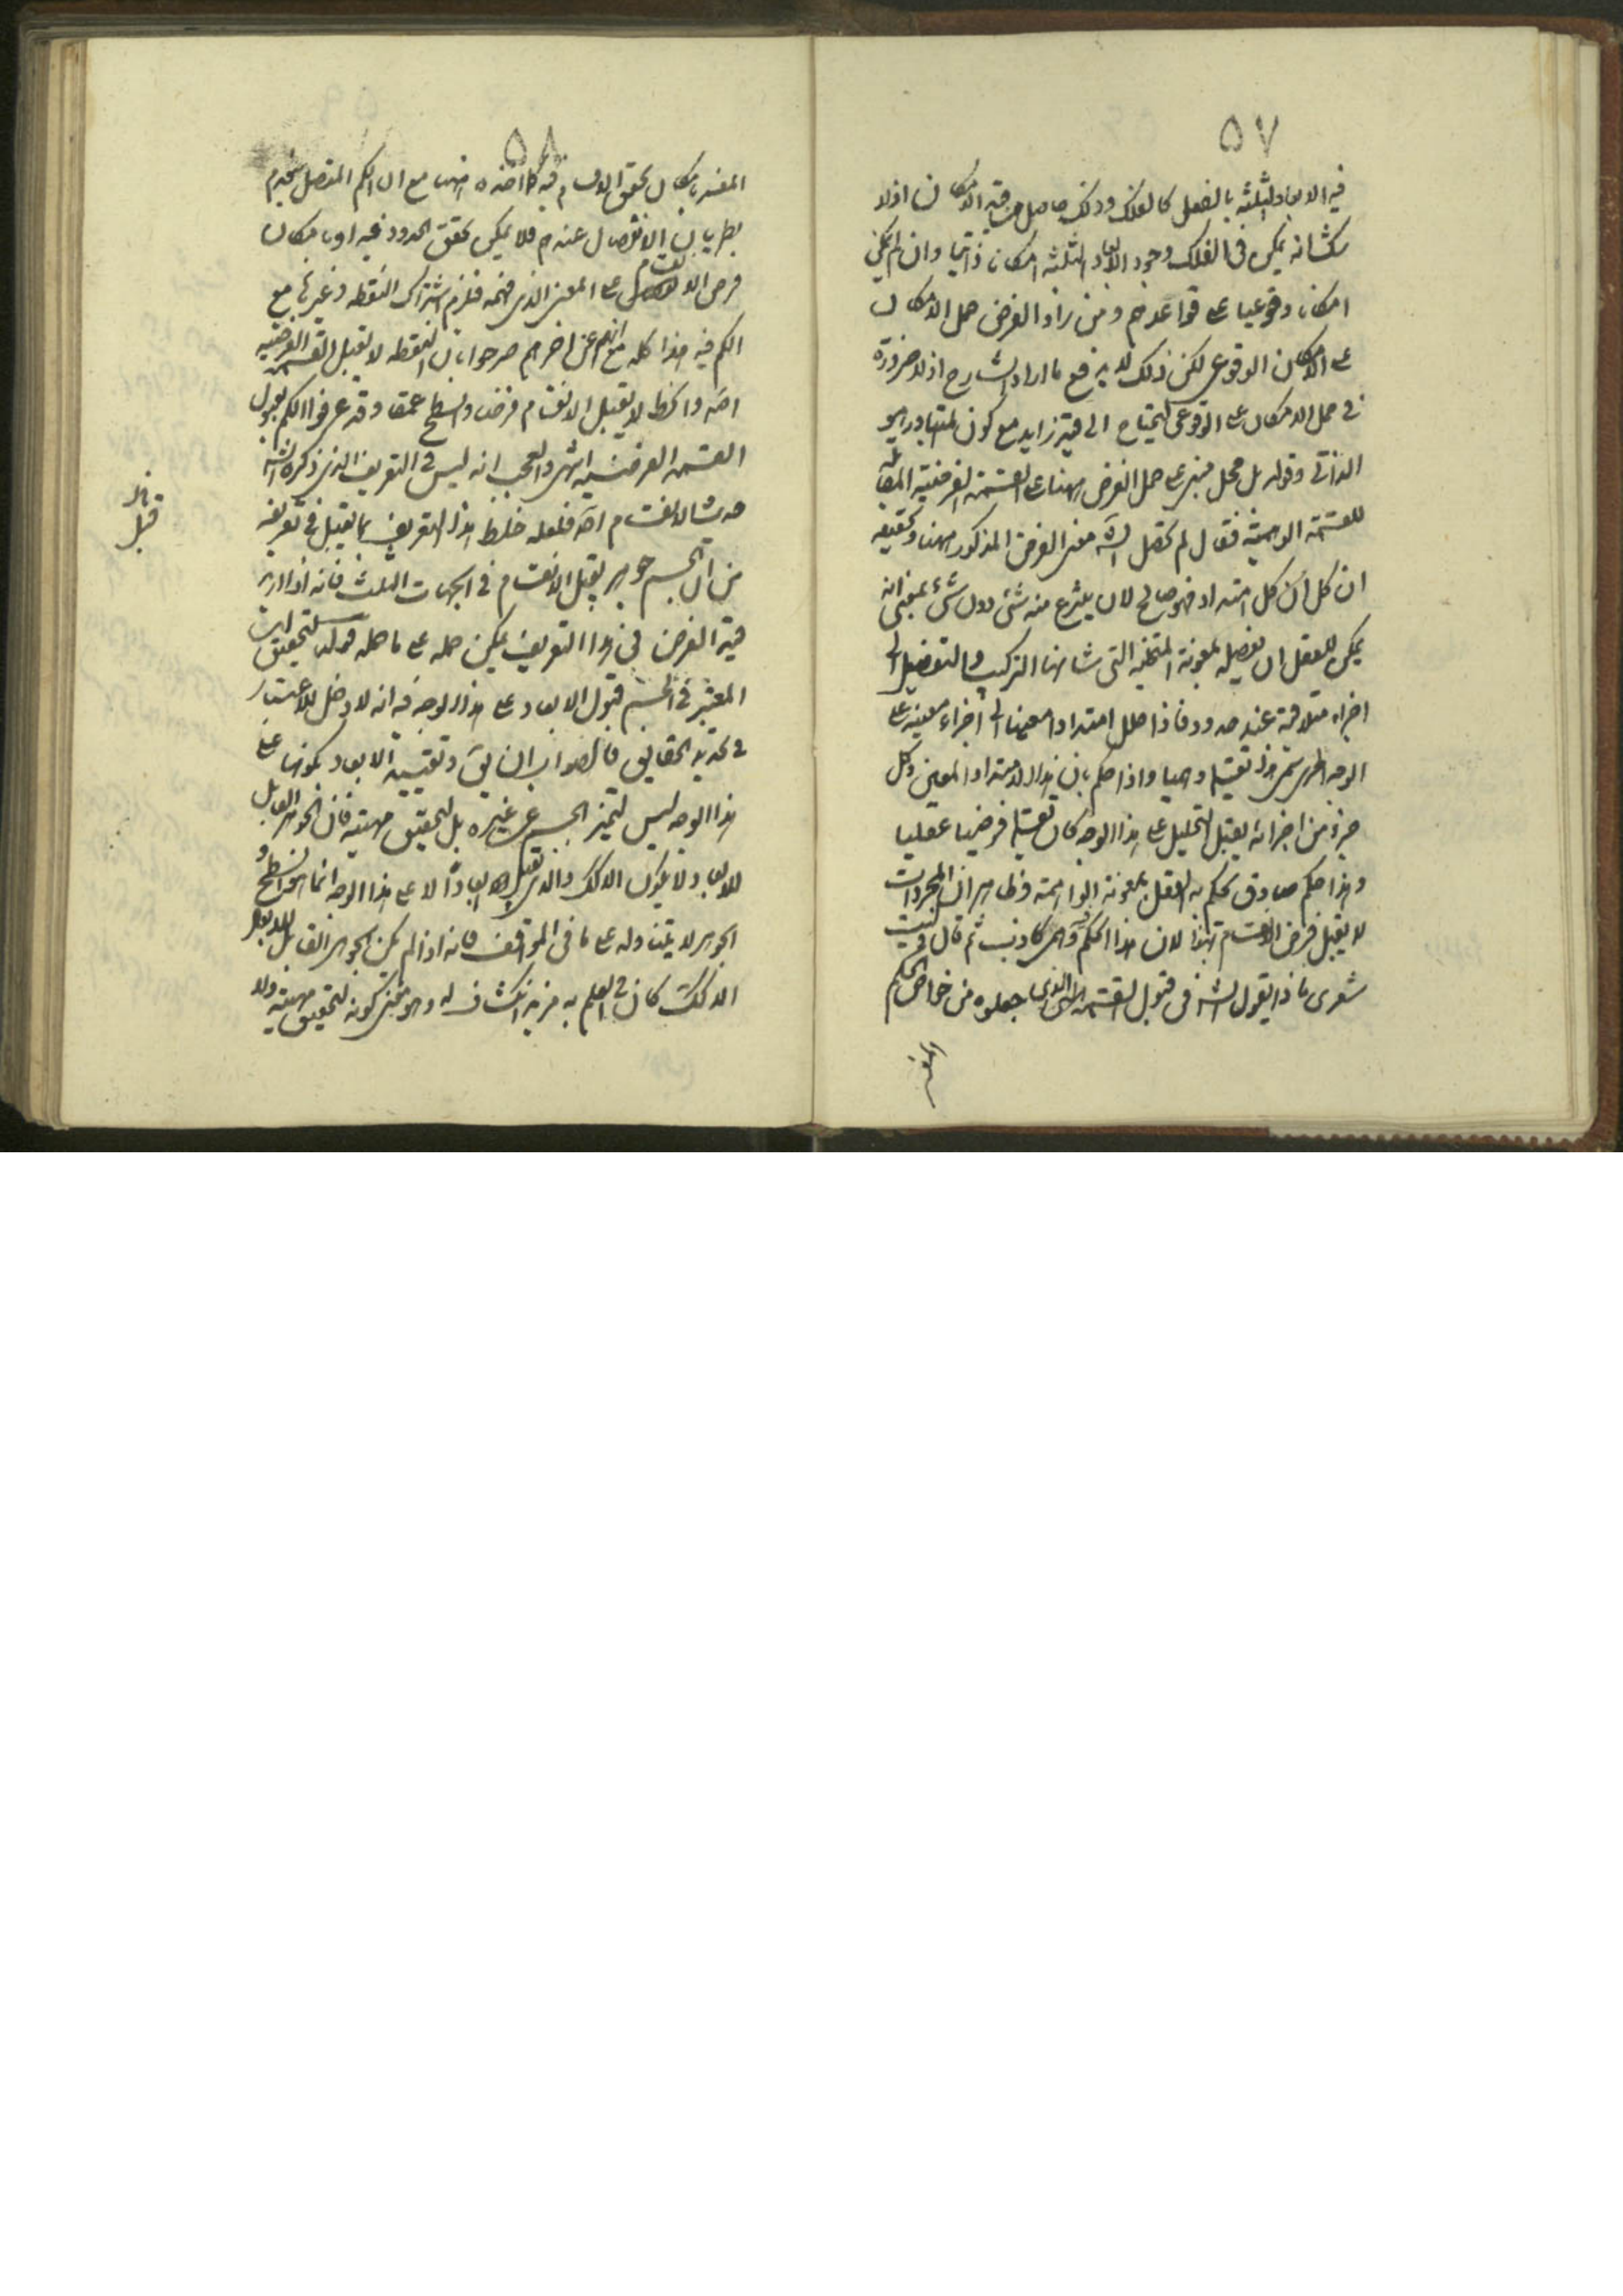 ٥٧
فيه الابعاد الثلثة بالفعل كالفلك وذلك حاصل من قيد الامكان اذ لا
شك انه يمكن فى الفلك وجود الابعاد الثلثة امكانا ذاتيا وان لم يكن
امكانا وقوعيا على قواعدهم ومن زاد الفرض حمل الامكان
على الامكان الوقوعى لكن ذلك لا يدفع ما اراد الشارح اذ لا ضرورة
فى حمل الامكان على الوقوعى ليحتاج الى قيد زايد مع كون المتبادر هو
الذاتى وقوله بل محل مبنى على حمل الفرض ههنا على القسمة الفرضية المقابلة
للقسمة الوهمية فقال لم تحصل الش معنى الفرض المذكور ههنا وتحقيقه
ان كل امتداد فهو صالح لان ينتزع منه شئ دون شئ بمعنى انه
يمكن للعقل ان يفصله بمعونة المتخيلة التى شانها التركيب والتفصيل الى
اجزاء متلاقية عند حدود فاذا حلل امتدادا معينا الى اجزاء معينة على
الوجه الجزئى سمى هذا تقسيما وهميا واذا حكم بان هذا الامتداد المعين وكل
جزء من اجزائه يقبل التحليل على هذا الوجه كان تقسيما فرضيا عقليا
وهذا حكم صادق يحكم به العقل بمعونة الواهمة وظاهر ان المجردات
لا يقبل فرض الانقسام بهذا لان هذا الحكم فيها كاذب ثم قال وليت
شعرى ماذا يقول الش فى قبول القسمة الذى جعلوه من خواص الكم
٥٨
المفسر بامكان تحقق الاقسام فيه كالخذه منها مع ان الكم المتصل ينعدم
بطريان الانفصال عندهم فلا يمكن تحقق الحدود فيه او بامكان
فرض الانقسام على المعنى الذى فهمه فلزم اشتراك النقطة وغيرها مع
الكم فيه هذا كله مع انهم عن اخرهم صرحوا بان النقطة لا تقبل القسمة الفرضية
اصلا والخط لا يقبل الانقسام فرضا والسطح عمقا وقد عرفوا الكم بقبول
القسمة الفرضية انتهى والعجب انه ليس فى التعريف الذى ذكره الش
حديث الانقسام اصلا فلعله خلط هذا التعريف بما يقبل فى تعريفه
من ان الجسم جوهر يقبل الانقسام فى الجهات الثلث فانه اذا اريد
قيد الفرض فى هذا التعريف يمكن حمله على ما حمله قوله لتحقيق
المعتبر فى الجسم قبول الابعاد على هذا الوجه فيه انه لا دخل للاعتبار
فى تحديد الحقايق فالصواب ان يق وتقييد الابعاد بكونها على
هذا الوجه ليس لتميز الجسم عن غيره بل لتحقيق مهيته فان الجوهر القابل
للابعاد لا يكون الا كك والذى يقبل ابعادا لا على هذا الوجه انما هو السطح و
الجوهر لا يتناوله على ما فى المواقف فانه اذا لم يكن الجوهر القابل للابعاد
الا كك كان فى العلم به مزيد انكشاف له وهو معنى كونه لتحقيق مهيته ولا
قبل